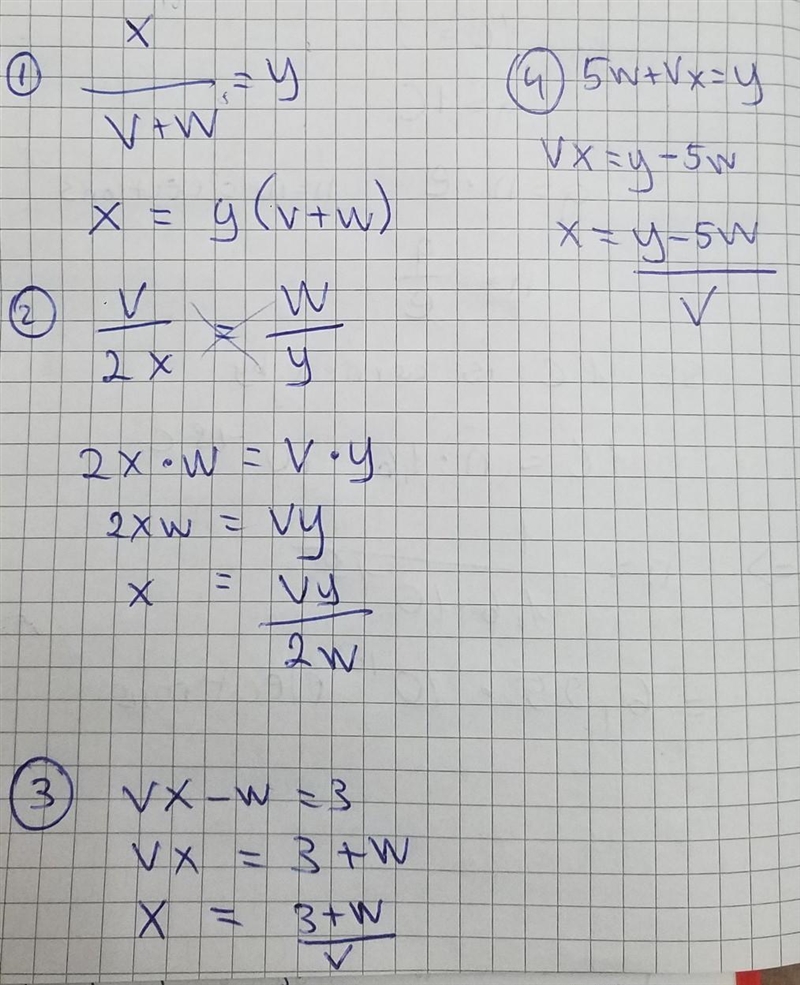 ① x/(v+w) = y
x = y(v+w)
② v/2x = w/y
2x·w = v·y
2xw = vy
x = vy/2w
③ vx-w=3
vx = 3+w
x = 3+w/v
④ 5w+vx=y
vx=y-5w
x = y-5w/v